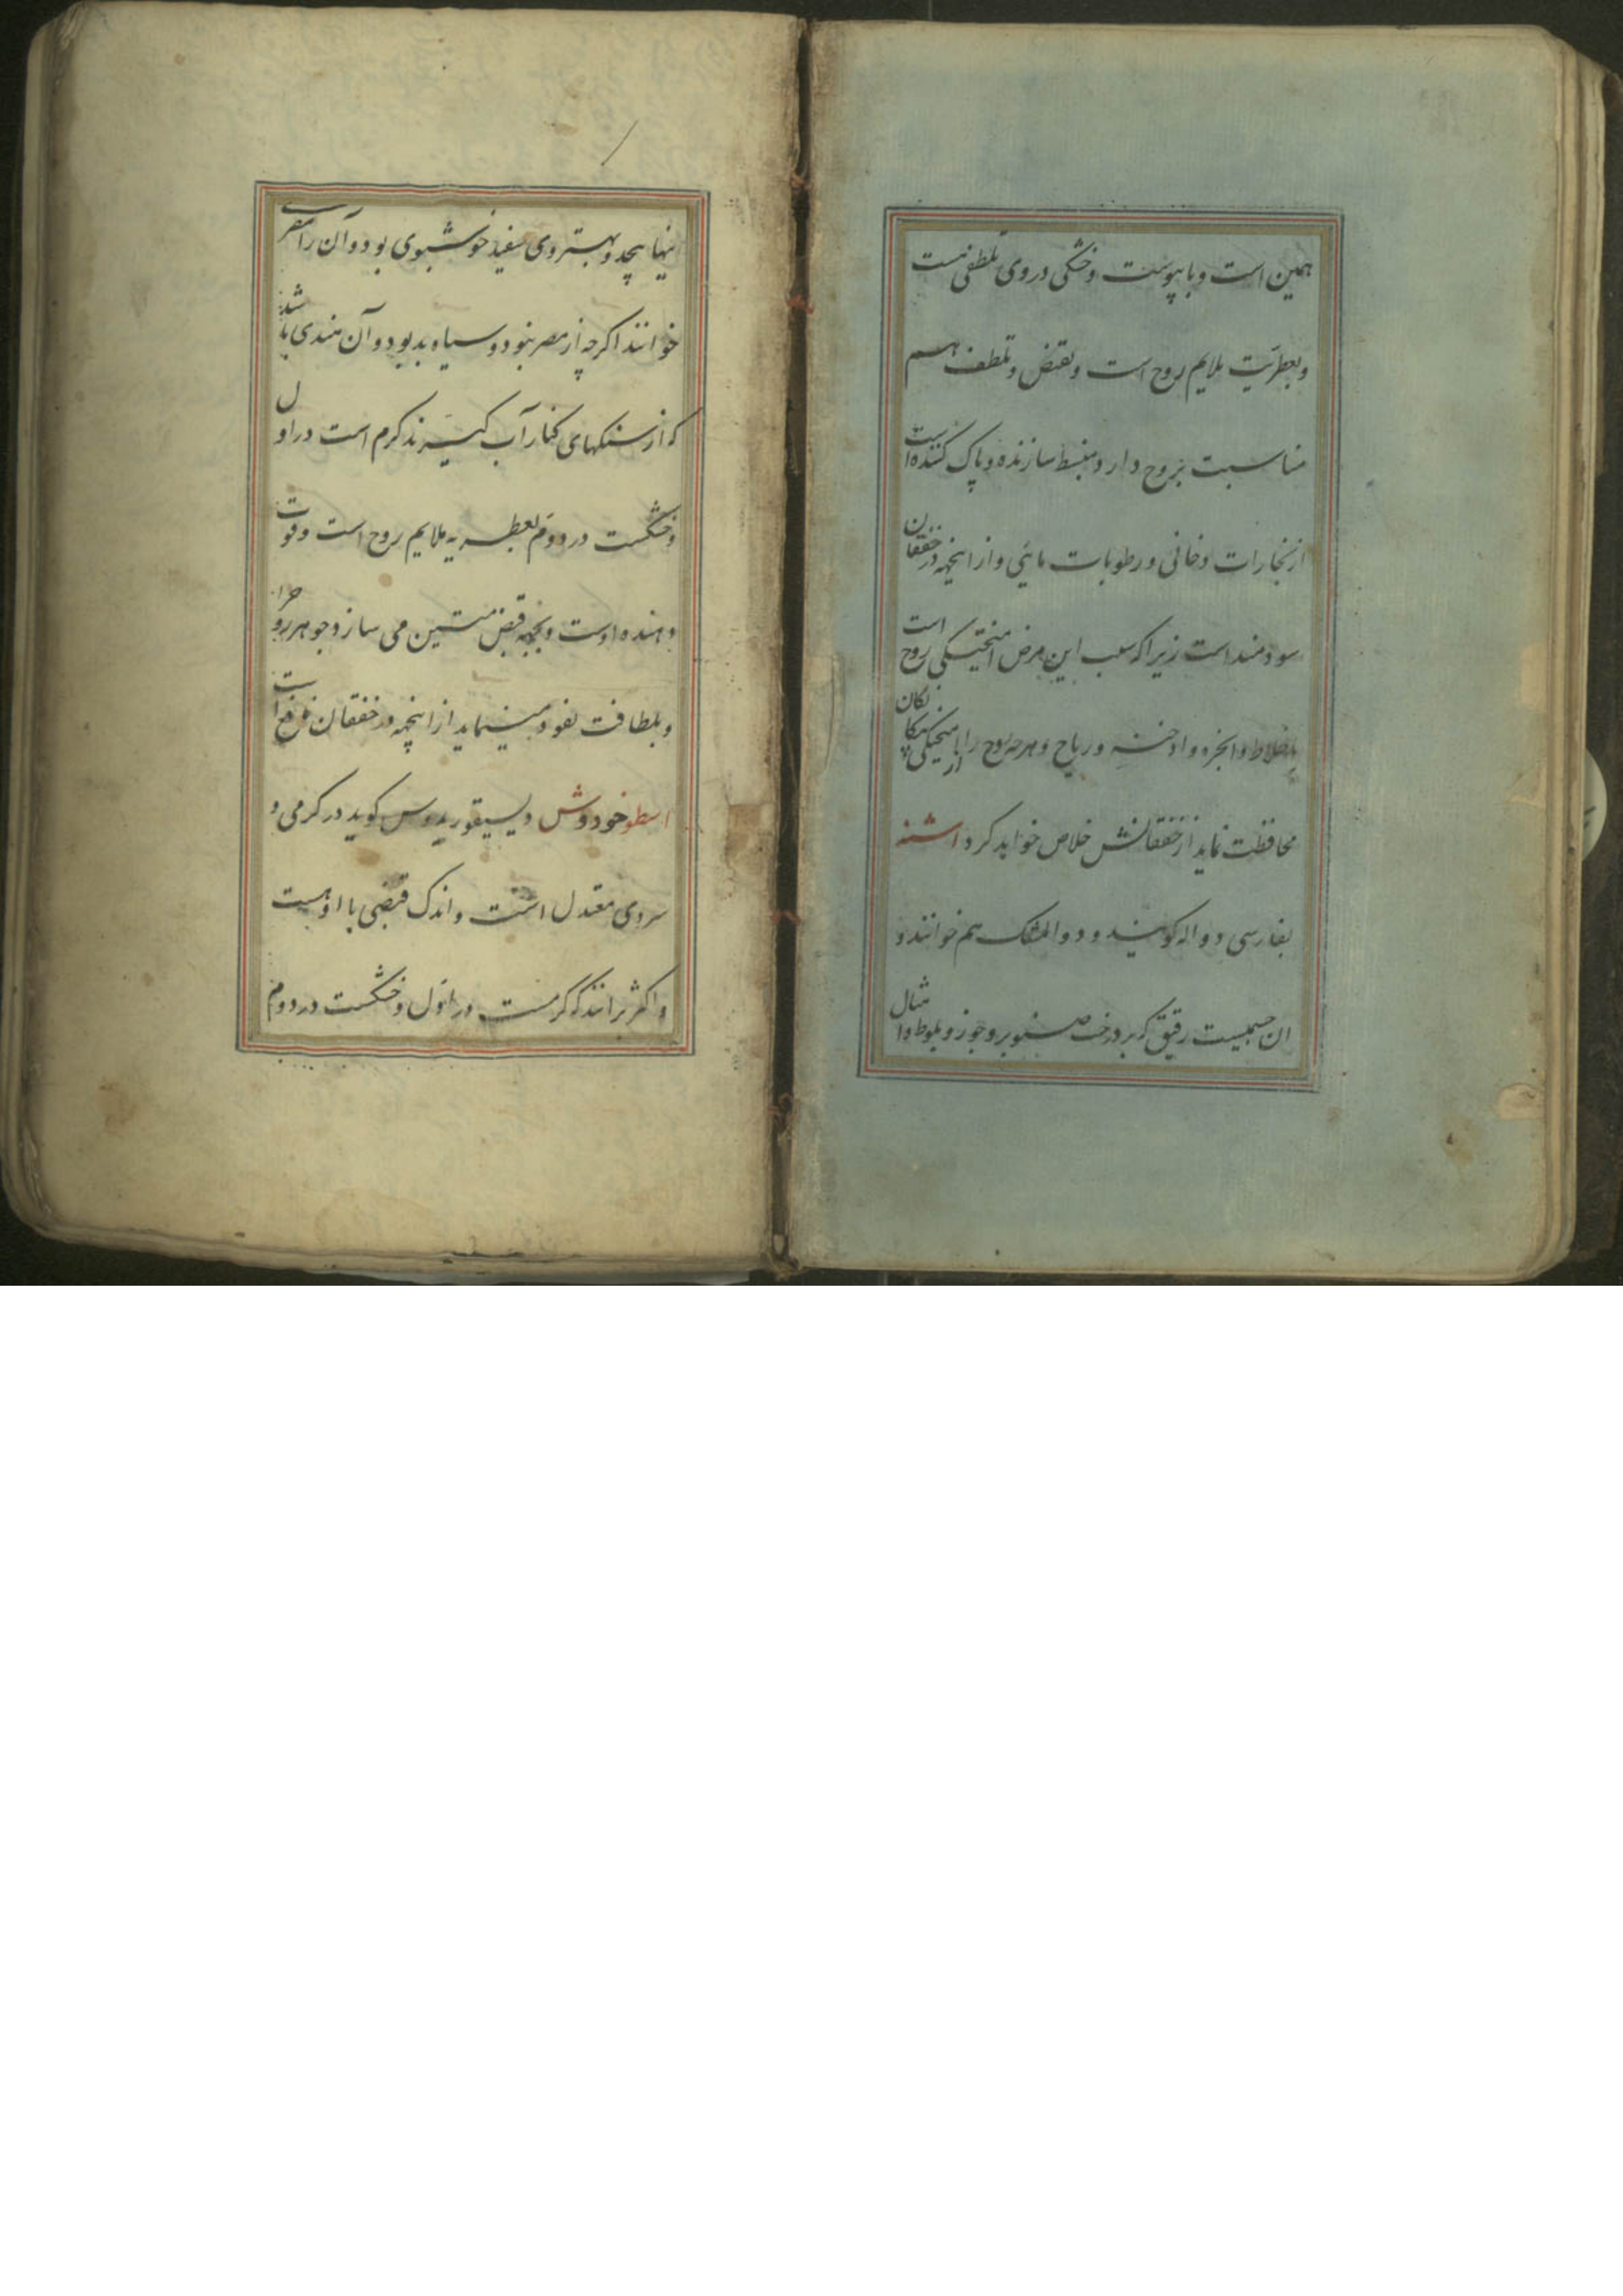 همین است و با یبوست و خشکی در وی تلطفی نیست
و بعطریت ملایم روح است و بقبض و تلطف هم
مناسبت بروح دارد و منبسط سازنده و پاک کننده است
از بخارات دخانی و رطوبات مائی و از اینجهة در خفقان
سودمند است زیرا که سبب این مرض امیختکی روح است
باخلاط و ابخره و ادخنه و ریاح و هرچه روح را از
محافظت نماید از خفقانش خلاص خواهد کرد اشنه
بفارسی دواله کویند و دوالمشک هم خوانند و
ان جسمیست رقیق که بر درخت صنوبر و جوز و بلوط و امثال
بپیچد و بهتر وی سفید خوشبوی بود و آن را
خوانند اکرچه از مصر نبود و سیاه بد بود و آن هندی باشد
که از سنکهای کنار آب کیرند کرم است در اول
و خشکست در دوم بعطریه ملایم روح است و قوت
دهنده اوست و بجهة قبض متین می سازد جوهر روح را
و بلطافت نفوذ مینماید از اینجهة در خفقان نافع است
اسطوخودوش دیسیقوریدوس کوید در کرمی و
سردی معتدل است و اندک قبضی با او هست
و اکثر برانند که کرمست در اول و خشکست در دوم